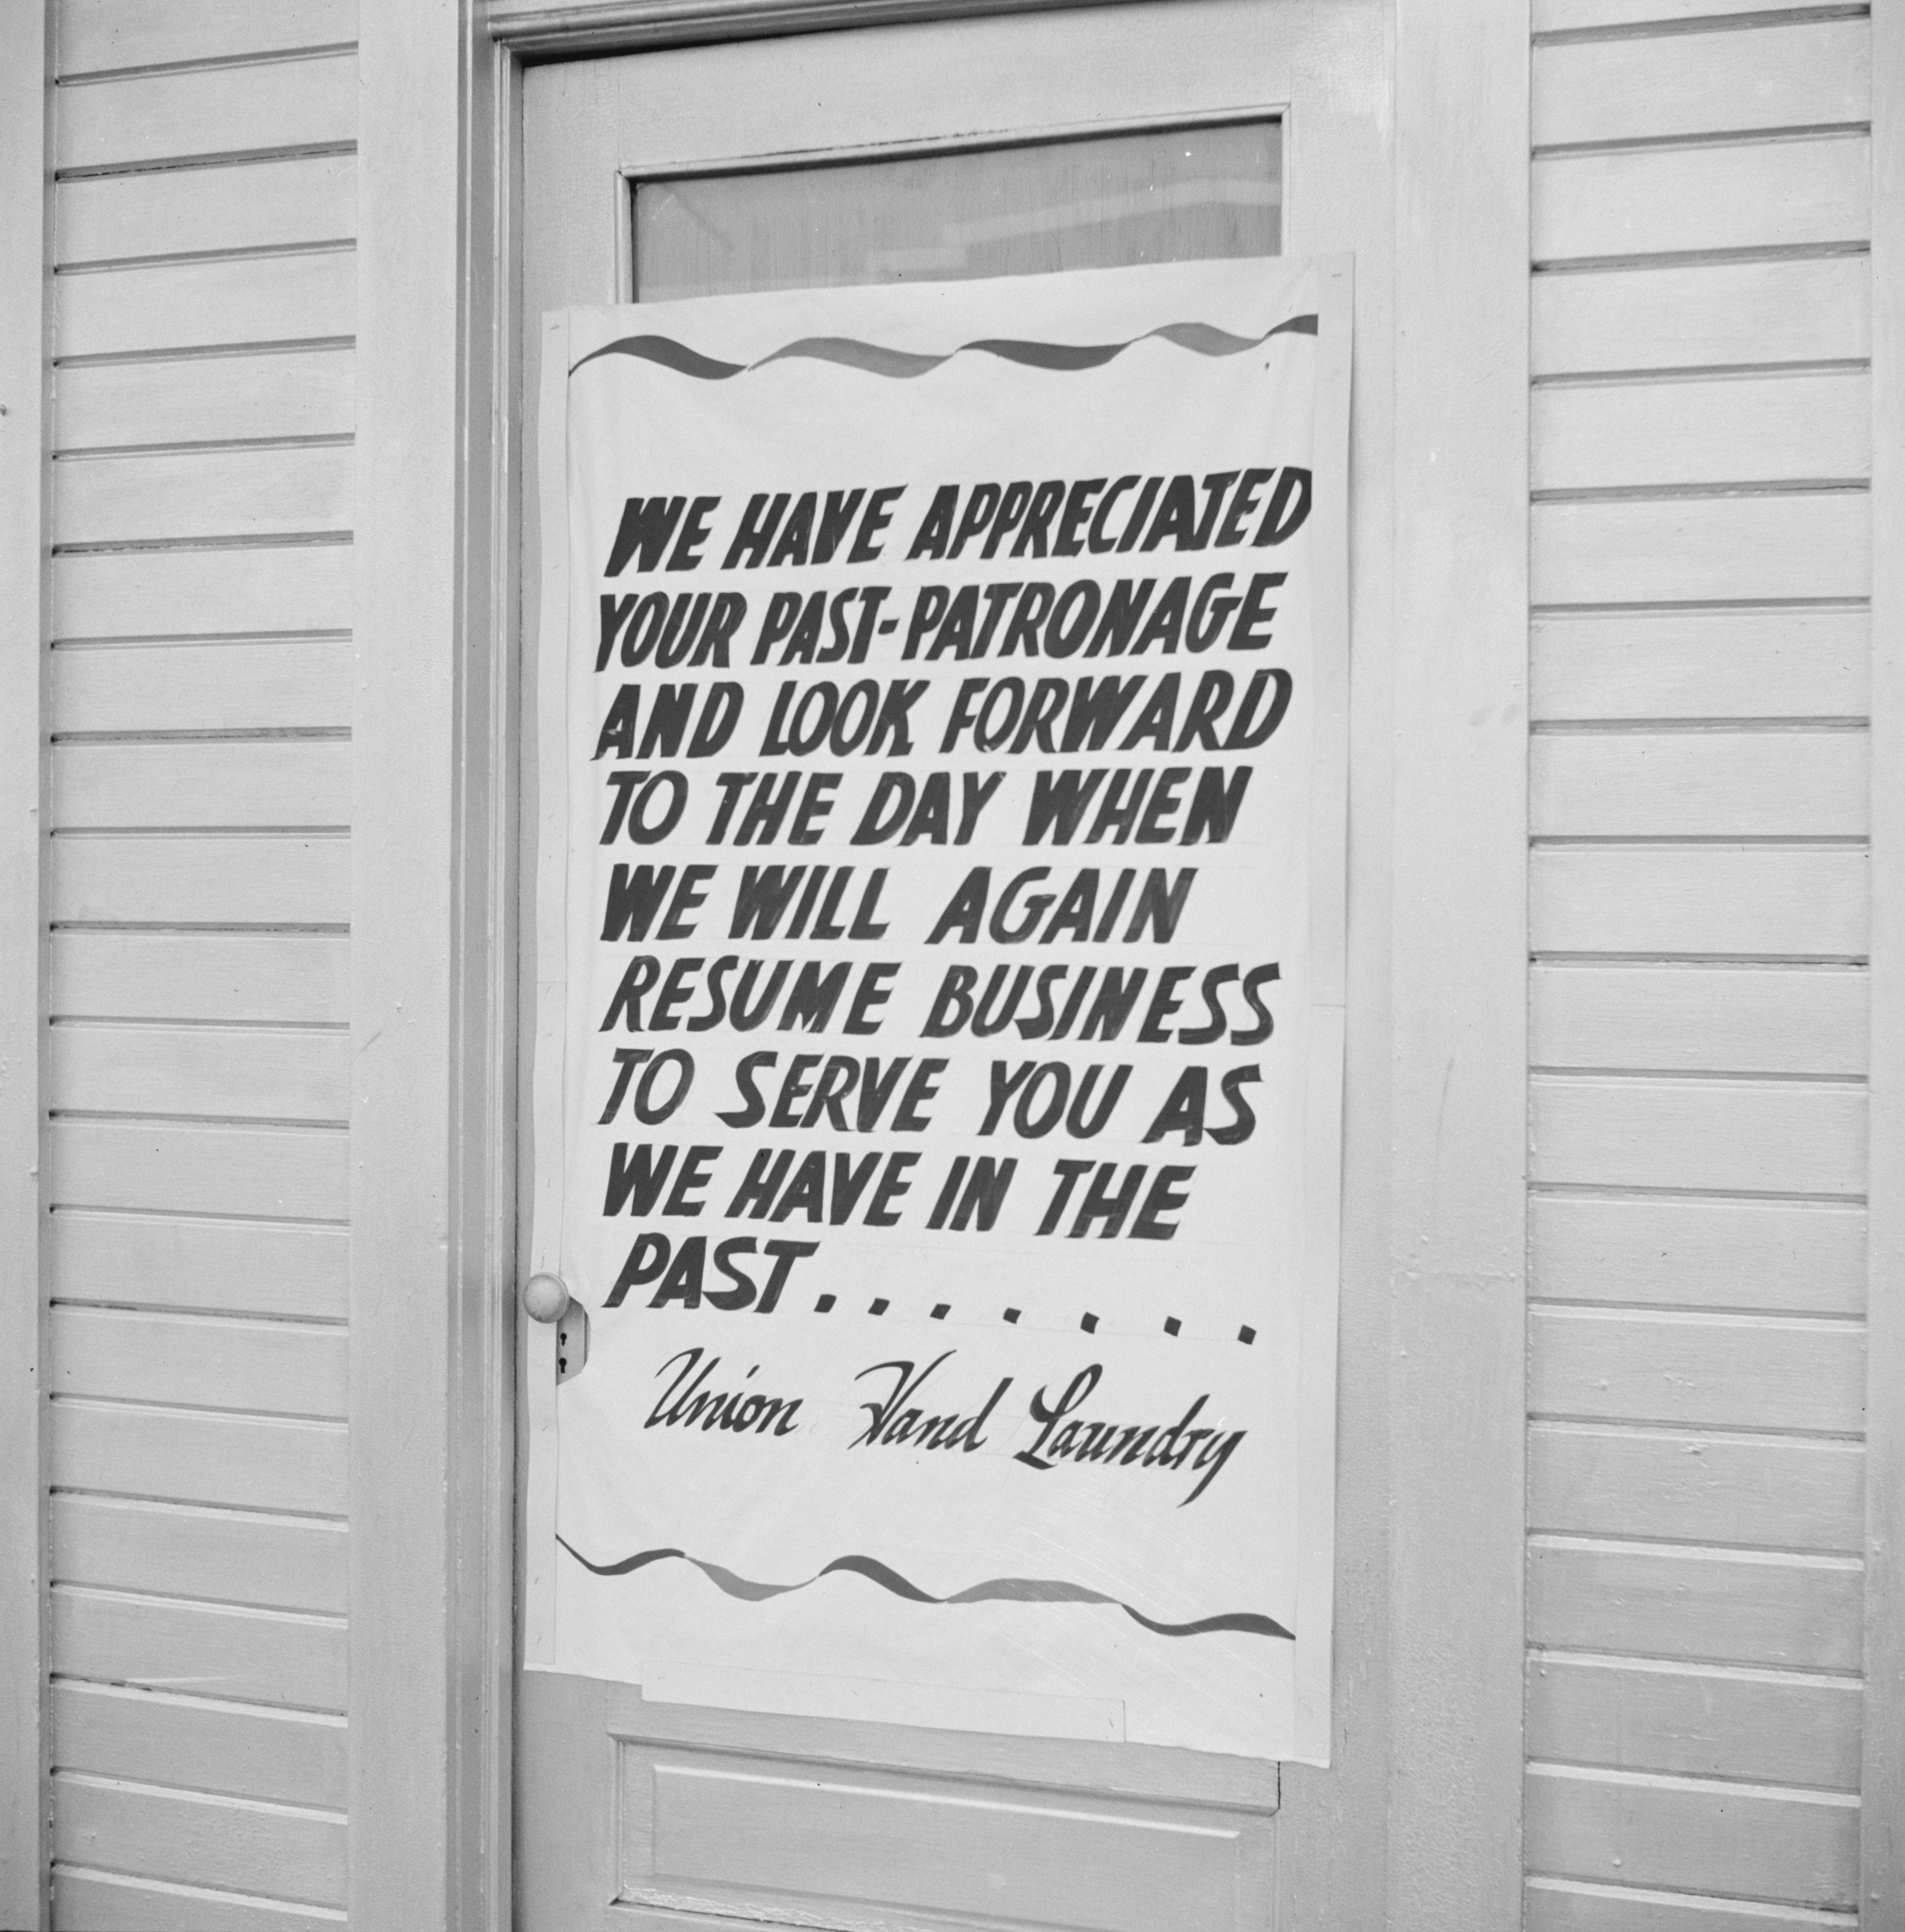 WE HAVE APPRECIATED
YOUR PAST-PATRONAGE
AND LOOK FORWARD
TO THE DAY WHEN
WE WILL AGAIN
RESUME BUSINESS
TO SERVE YOU AS
WE HAVE IN THE
PAST.......
Union Hand Laundry